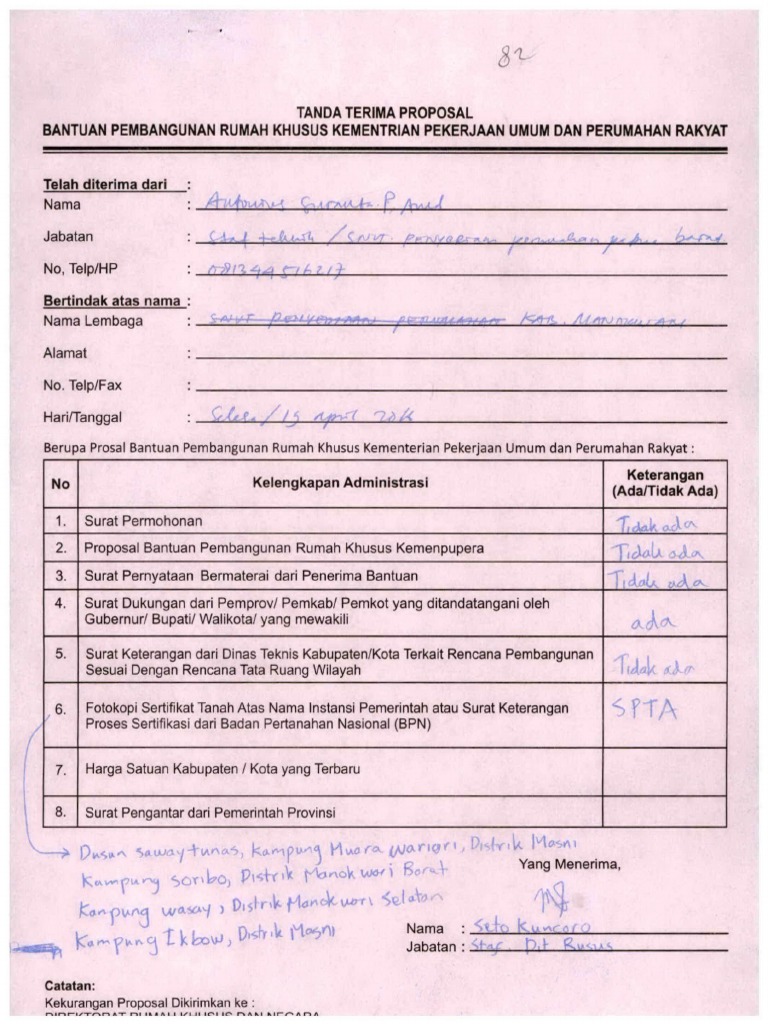 82
TANDA TERIMA PROPOSAL
BANTUAN PEMBANGUNAN RUMAH KHUSUS KEMENTRIAN PEKERJAAN UMUM DAN PERUMAHAN RAKYAT
Telah diterima dari :
Nama :
Jabatan : Staf teknis / SNVT penyediaan perumahan papua barat
No, Telp/HP : 081344516217
Bertindak atas nama :
Nama Lembaga : SNVT PENYEDIAAN PERUMAHAN KAB. MANOKWARI
Alamat :
No. Telp/Fax :
Hari/Tanggal : Selasa / 19 april 2016
Berupa Prosal Bantuan Pembangunan Rumah Khusus Kementerian Pekerjaan Umum dan Perumahan Rakyat :
No Kelengkapan Administrasi Keterangan (Ada/Tidak Ada)
1. Surat Permohonan Tidak ada
2. Proposal Bantuan Pembangunan Rumah Khusus Kemenpupera Tidak ada
3. Surat Pernyataan Bermaterai dari Penerima Bantuan Tidak ada
4. Surat Dukungan dari Pemprov/ Pemkab/ Pemkot yang ditandatangani oleh
Gubernur/ Bupati/ Walikota/ yang mewakili ada
5. Surat Keterangan dari Dinas Teknis Kabupaten/Kota Terkait Rencana Pembangunan
Sesuai Dengan Rencana Tata Ruang Wilayah Tidak ada
6. Fotokopi Sertifikat Tanah Atas Nama Instansi Pemerintah atau Surat Keterangan
Proses Sertifikasi dari Badan Pertanahan Nasional (BPN) SPTA
7. Harga Satuan Kabupaten / Kota yang Terbaru
8. Surat Pengantar dari Pemerintah Provinsi
Dusun sawaytunas, Kampung Muara Wariori, Distrik Masni
Kampung Soribo, Distrik Manokwari Barat
Kampung wasay, Distrik Manokwari Selatan
Kampung Ikbow, Distrik Masni
Yang Menerima,
Nama : Seto Kuncoro
Jabatan : Staf Dit Rusus
Catatan:
Kekurangan Proposal Dikirimkan ke :
DIREKTORAT RUMAH KHUSUS DAN NEGARA